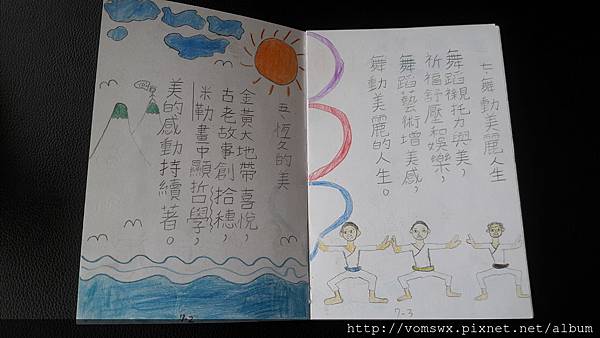 五、恆久的美
金黃大地帶喜悅，
古老故事創拾穗，
米勒畫中顯哲學，
美的感動持續著。
7-2
七、舞動美麗人生
舞蹈襯托力與美，
祈福舒壓和娛樂，
舞蹈藝術增美感，
舞動美麗的人生。
7-3
http://vomswx.pixnet.net/album